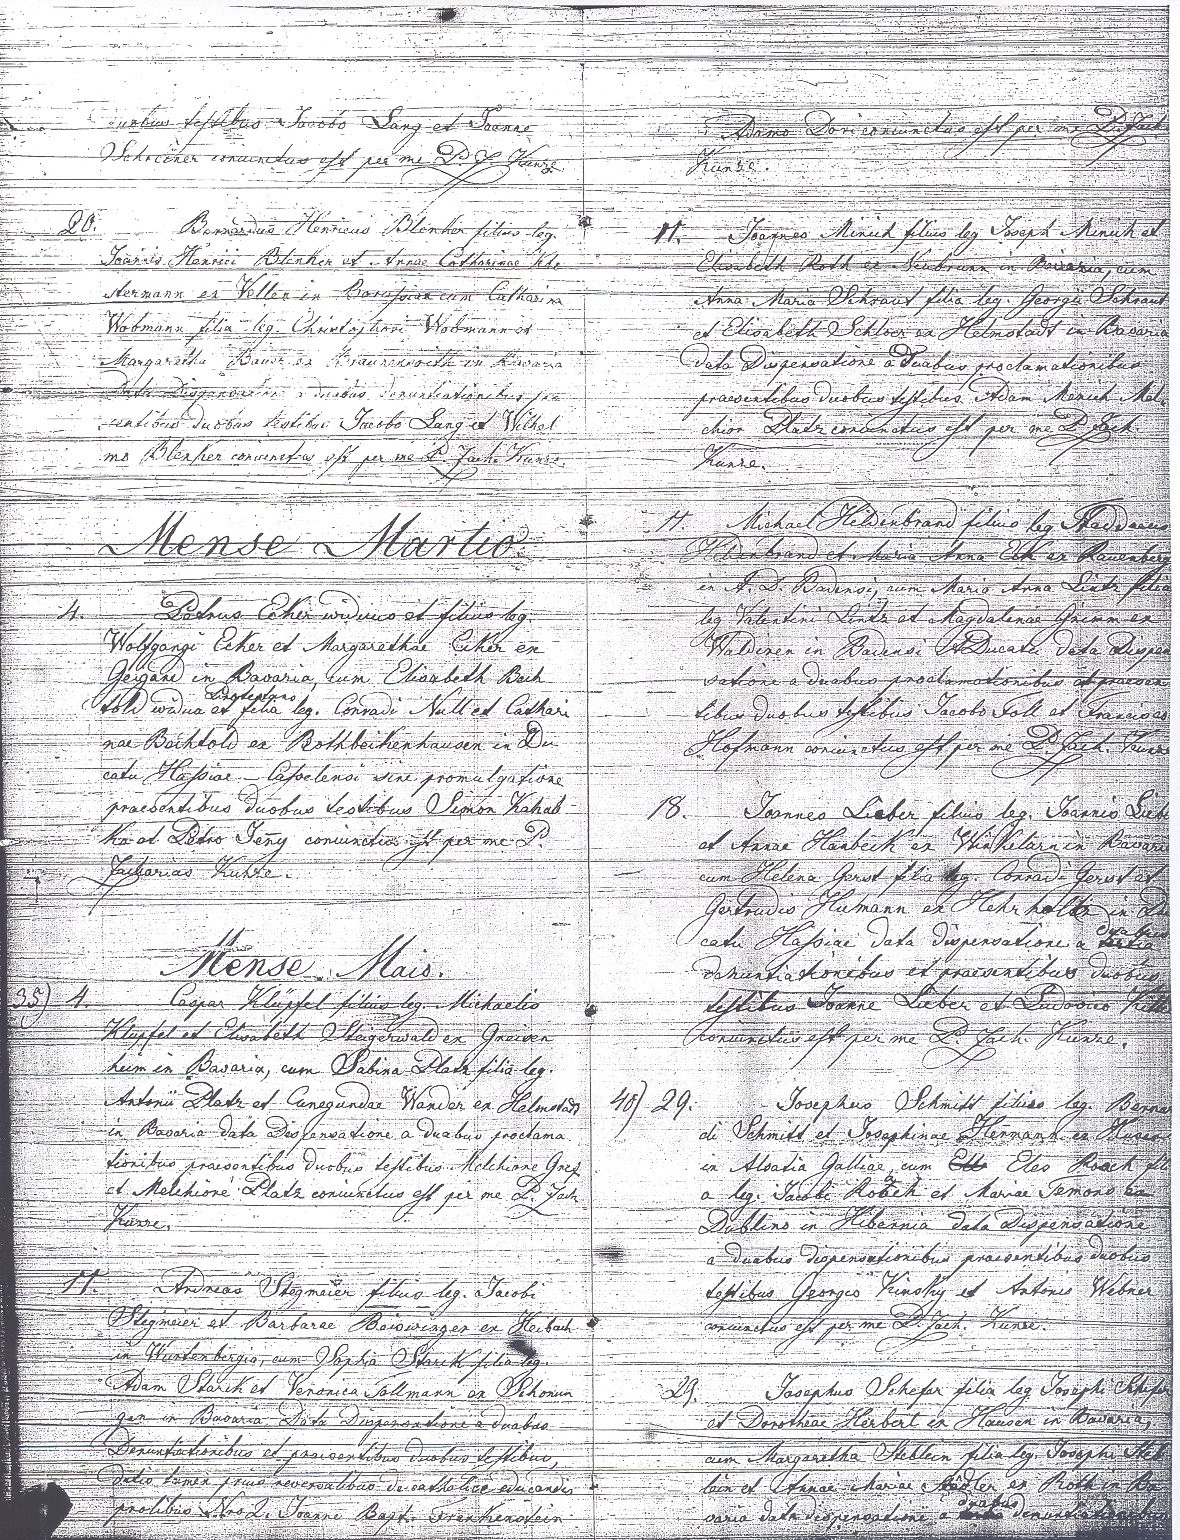 testibus Jacobo Lang et Joanne
Schreiner coniunctus est per me P. Z. Kunze
20. Bernardus Henricus Blenker filius leg.
Joannis Henrici Blenker et Annae Catharinae
termann ex Vellen in Borussia cum Catharina
Wobmann filia leg. Christophori Wobmann et
Margaretha Bauer ex in Bavaria
data Dispensatione a duabus denuntiationibus prae
sentibus duobus testibus Jacobo Lang et Wilhel
mo Blenker coniunctus est per me P. Zach. Kunze.
Mense Martio.
4. Petrus Ecker widuus et filius leg.
Wolfgangi Ecker et Margarethae Ecker ex
Geigant in Bavaria, cum Elisabeth Bech
told widua et filia leg. Conradi Null et Cathari
nae Bechtold ex Rothbeikenhausen in Du
catu Hassiae-Casselensi sine promulgatione
praesentibus duobus testibus Simon Kahab
ka et Petro Jeny coniunctus est per me P.
Zacharias Kunze.
Mense Maio.
35) 4. Caspar Klüpfel filius leg. Michaelis
Klüpfel et Elisabeth Steigerwald ex Greisen
heim in Bavaria, cum Sabina Platz filia leg.
Antonii Platz et Cunegundae Wander ex Helmstadt
in Bavaria data Dispensatione a duabus proclama
tionibus praesentibus duobus testibus Melchiore Gref
et Melchiore Platz coniunctus est per me P. Zach
Kunze.
11. Andreas Stegmaier filius leg. Jacobi
Stegmeier et Barbarae Boiswinger ex Hoibach
in Würtenbergia, cum Sophia Starck filia leg.
Adam Starck et Veronica Sollmann ex Schonun
gen in Bavaria Data Dispensatione a duabus
Denuntiationibus et praesentibus duobus testibus,
datis tamen prius reversalibus de catholice educandis
prolibus Nro 2. Joanne Bapt. Frenkenstein
Adamo Dori coniunctus est per me P. Zach
Kunze.
11. Joannes Minich filius leg Joseph Minich et
Elisabeth Roth ex Neubrunn in Bavaria, cum
Anna Maria Schraut filia leg. Georgii Schraut
et Elisabeth Schloer ex Helmstadt in Bavaria
data Dispensatione a Duabus proclamationibus
praesentibus duobus testibus Adam Menich Mel
chior Platz coniunctus est per me P. Zach.
Kunze.
11. Michael Hildenbrand filius leg Thaddaeus
Hildenbrand et Maria Anna Eck ex Rauenberg
in A. D. Badensi, cum Maria Anna Lintz filia
leg Valentini Lintz et Magdalenae Grimm ex
Walduren in Badensi A Ducatu data Dispen
satione a duabus proclamationibus et praesen
tibus duobus testibus Jacobo Foll et Francisco
Hofmann coniunctus est per me P. Zach. Kunze
18. Joannes Lieber filius leg. Joannis Lieb
et Annae Hanbeck ex Winkelarn in Bavaria
cum Helena Gerst filia leg. Conradi Gerst et
Gertrudis Humann ex in Du
catu Hassiae data dispensatione a duabus
denuntiationibus et praesentibus duobus
testibus Joanne Lieber et Ludovico
coniunctus est per me P. Zach. Kunze.
40) 29. Josephus Schmitt filius leg. Bernar
di Schmitt et Josephinae Hermann ex
in Alsatia Galliae, cum Eles Roach fili
a leg. Jacobi Roach et Mariae Temons ex
Dublino in Hibernia data Dispensatione
a duabus dispensationibus praesentibus duobus
testibus Georgio Kinsky et Antonio Webner
coniunctus est per me P. Zach. Kunze.
29. Josephus Schefer filia leg Josephi Schefer
et Dorotheae Herbert ex Hausen in Bavaria,
cum Margaretha Steblein filia leg. Josephi Steb
lein et Annae Mariae Städler ex Roth in Ba
varia data dispensatione a duabus denuntiationibus